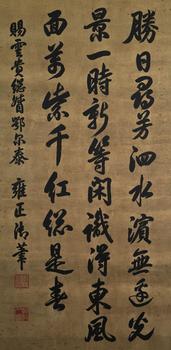 勝日尋芳泗水濱無邊光
景一時新等閒識得東風
面萬紫千紅總是春
賜雲貴總督鄂尔泰
雍正御筆